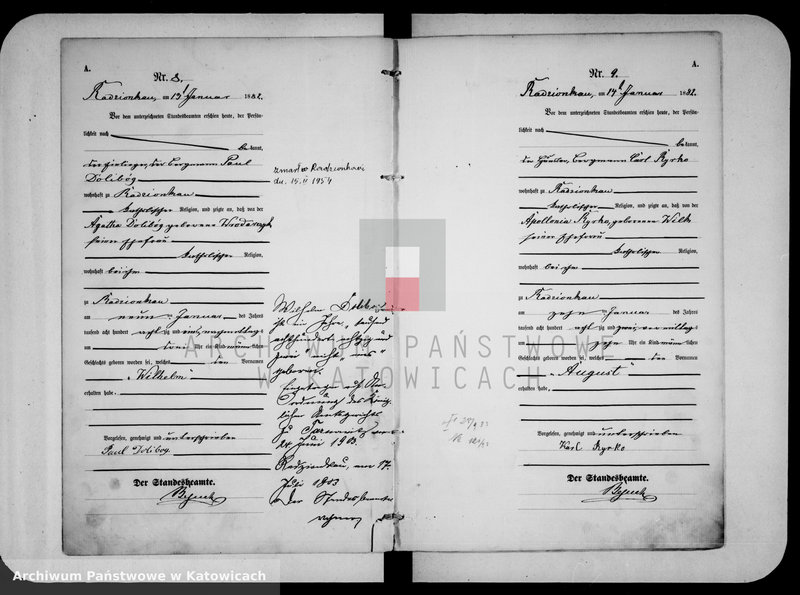 A.
Nr. 8.
Radzionkau, am 13 Januar 1882.
Vor dem unterzeichneten Standesbeamten erschien heute, der Persön-
lichkeit nach
bekannt,
der Bergmann Paul
Dolibóg
wohnhaft zu Radzionkau
katholischer Religion, und zeigte an, daß von der
Agatha Dolibog geborenen
seiner Ehefrau
katholischer Religion,
wohnhaft bei ihm
zu Radzionkau
am neun ten Januar des Jahres
tausend acht hundert achtzig und nachmittags
um drei Uhr ein Kind männlichen
Geschlechts geboren worden sei, welches den Vornamen
"Wilhelm"
erhalten habe.
Vorgelesen, genehmigt und unterschrieben
Paul Dolibog.
Der Standesbeamte.
zmarł w Radzionkowie
dn. 15.II 1954
Wilhelm
ist im Jahre "tausend
achthundert achtzig und
zwei" nicht "eins"
geboren.
Eingetragen auf
Ordnung des König-
lichen Amtsgerichts
zu Tarnowitz vom
Juni 1903.
Radzionkau, am 17.
Juli 1903
Der Standesbeamte
A.
Nr. 9.
Radzionkau, am 14 Januar 1882.
Vor dem unterzeichneten Standesbeamten erschien heute, der Persön-
lichkeit nach
bekannt,
der Häusler, Bergmann Carl Kyrko
wohnhaft zu Radzionkau
katholischer Religion, und zeigte an, daß von der
Apollonia Kyrko, geborenen Wilk
seiner Ehefrau
katholischer Religion,
wohnhaft bei ihm
zu Radzionkau
am zehn ten Januar des Jahres
tausend acht hundert achtzig und zwei, vormittags
um zehn Uhr ein Kind männlichen
Geschlechts geboren worden sei, welches den Vornamen
"August"
erhalten habe.
Vorgelesen, genehmigt und unterschrieben
Karl Kyrko
Der Standesbeamte.
ARCHIWUM PAŃSTWOWE
W KATOWICACH
Archiwum Państwowe w Katowicach